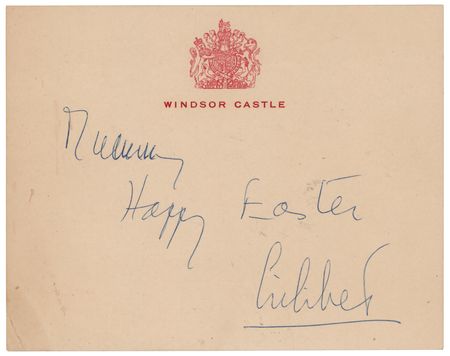 WINDSOR CASTLE
Mummy
Happy Easter
Lilibet